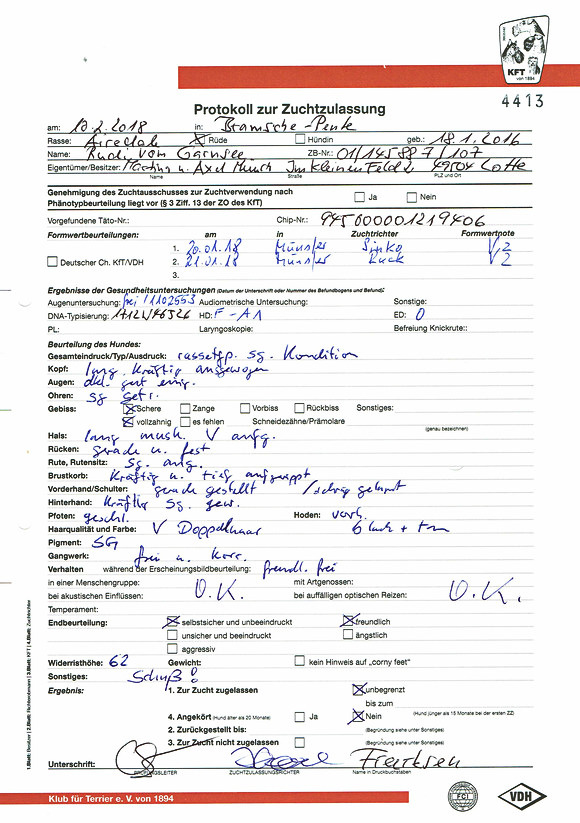 KFT
von 1894
4413
Protokoll zur Zuchtzulassung
am: 10.2.2018 in: Bramsche-Pente
Rasse: Airedale Rüde Hündin geb.: 18.1.2016
Name: Rudi vom Garnsee ZB-Nr.: 01/145887/107
Eigentümer/Besitzer: Martina u. Axel Münch Im kleinen Felde 2 49504 Lotte
Name Straße PLZ und Ort
Genehmigung des Zuchtausschusses zur Zuchtverwendung nach
Phänotypbeurteilung liegt vor (§ 3 Ziff. 13 der ZO des KfT) Ja Nein
Vorgefundene Täto-Nr.: Chip-Nr.: 945000001219406
Formwertbeurteilungen: am in Zuchtrichter Formwertnote
1. 20.01.18 Münster Sinko V2
Deutscher Ch. KfT/VDH 2. 21.01.18 Münster V2
3.
Ergebnisse der Gesundheitsuntersuchungen (Datum der Unterschrift oder Nummer des Befundbogens und Befund):
Augenuntersuchung: frei 1102553 Audiometrische Untersuchung: Sonstige:
DNA-Typisierung: HD: F-A1 ED: 0
PL: Laryngoskopie: Befreiung Knickrute::
Beurteilung des Hundes:
Gesamteindruck/Typ/Ausdruck: rassetyp. sg. Kondition
Kopf: lang, kräftig
Augen: dkl. gut
Ohren: sg getr.
Gebiss: Schere Zange Vorbiss Rückbiss Sonstiges:
vollzahnig es fehlen Schneidezähne/Prämolare
(genau bezeichnen)
Hals: lang musk. V aufg.
Rücken: gerade u. fest
Rute, Rutensitz: sg. ang.
Brustkorb: kräftig u. tief aufgerippt
Vorderhand/Schulter: gerade gestellt / schräg gelagert
Hinterhand: kräftig sg. gew.
Pfoten: geschl. Hoden: vorh.
Haarqualität und Farbe: V Doppelhaar black + tan
Pigment: SG
Gangwerk: frei u. korr.
Verhalten während der Erscheinungsbildbeurteilung: freundl. frei
in einer Menschengruppe: O.K. mit Artgenossen: O.K.
bei akustischen Einflüssen: bei auffälligen optischen Reizen:
Temperament:
Endbeurteilung: selbstsicher und unbeeindruckt freundlich
unsicher und beeindruckt ängstlich
aggressiv
Widerristhöhe: 62 Gewicht: kein Hinweis auf „corny feet"
Sonstiges: Schuß!
Ergebnis: 1. Zur Zucht zugelassen unbegrenzt
bis zum
4. Angekört (Hund älter als 20 Monate) Ja Nein (Hund jünger als 15 Monate bei der ersten ZZ)
2. Zurückgestellt bis: (Begründung siehe unter Sonstiges)
3. Zur Zucht nicht zugelassen (Begründung siehe unter Sonstiges)
Unterschrift:
PRÜFUNGSLEITER ZUCHTZULASSUNGSRICHTER Name in Druckbuchstaben
1.Blatt: Besitzer | 2.Blatt: Richterobmann | 3.Blatt: KfT | 4.Blatt: Zuchtrichter
Klub für Terrier e. V. von 1894
FCI
VDH